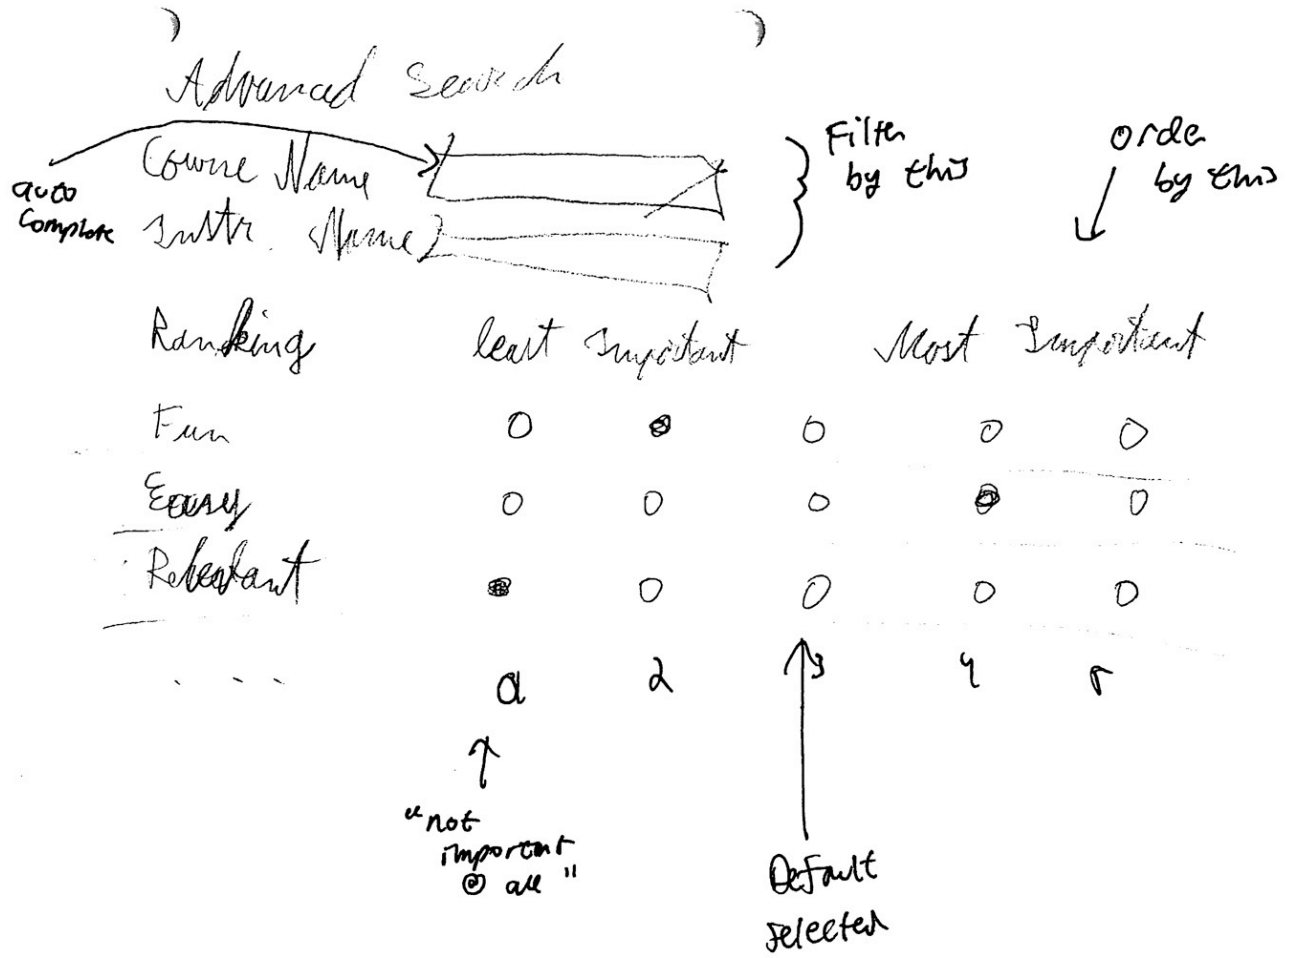 Advanced Search
Course Name
auto
Complete
Instr. Name
Filter
by this
order
by this
Ranking least Important Most Important
Fun
Easy
2 3 4 5
"not
important
@ all"
Default
selected